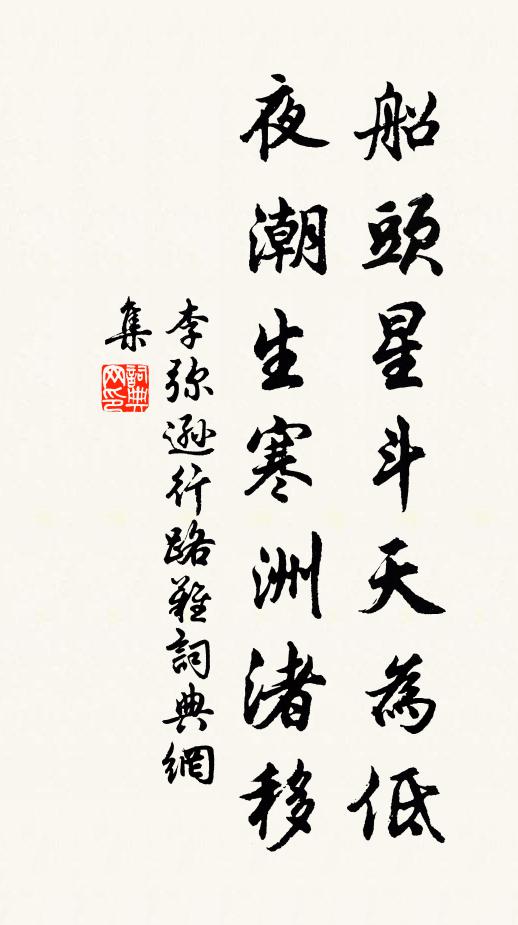 船頭星斗天為低
夜潮生寒洲渚移
李弥遜行路難詞典網
集
詞典
网印